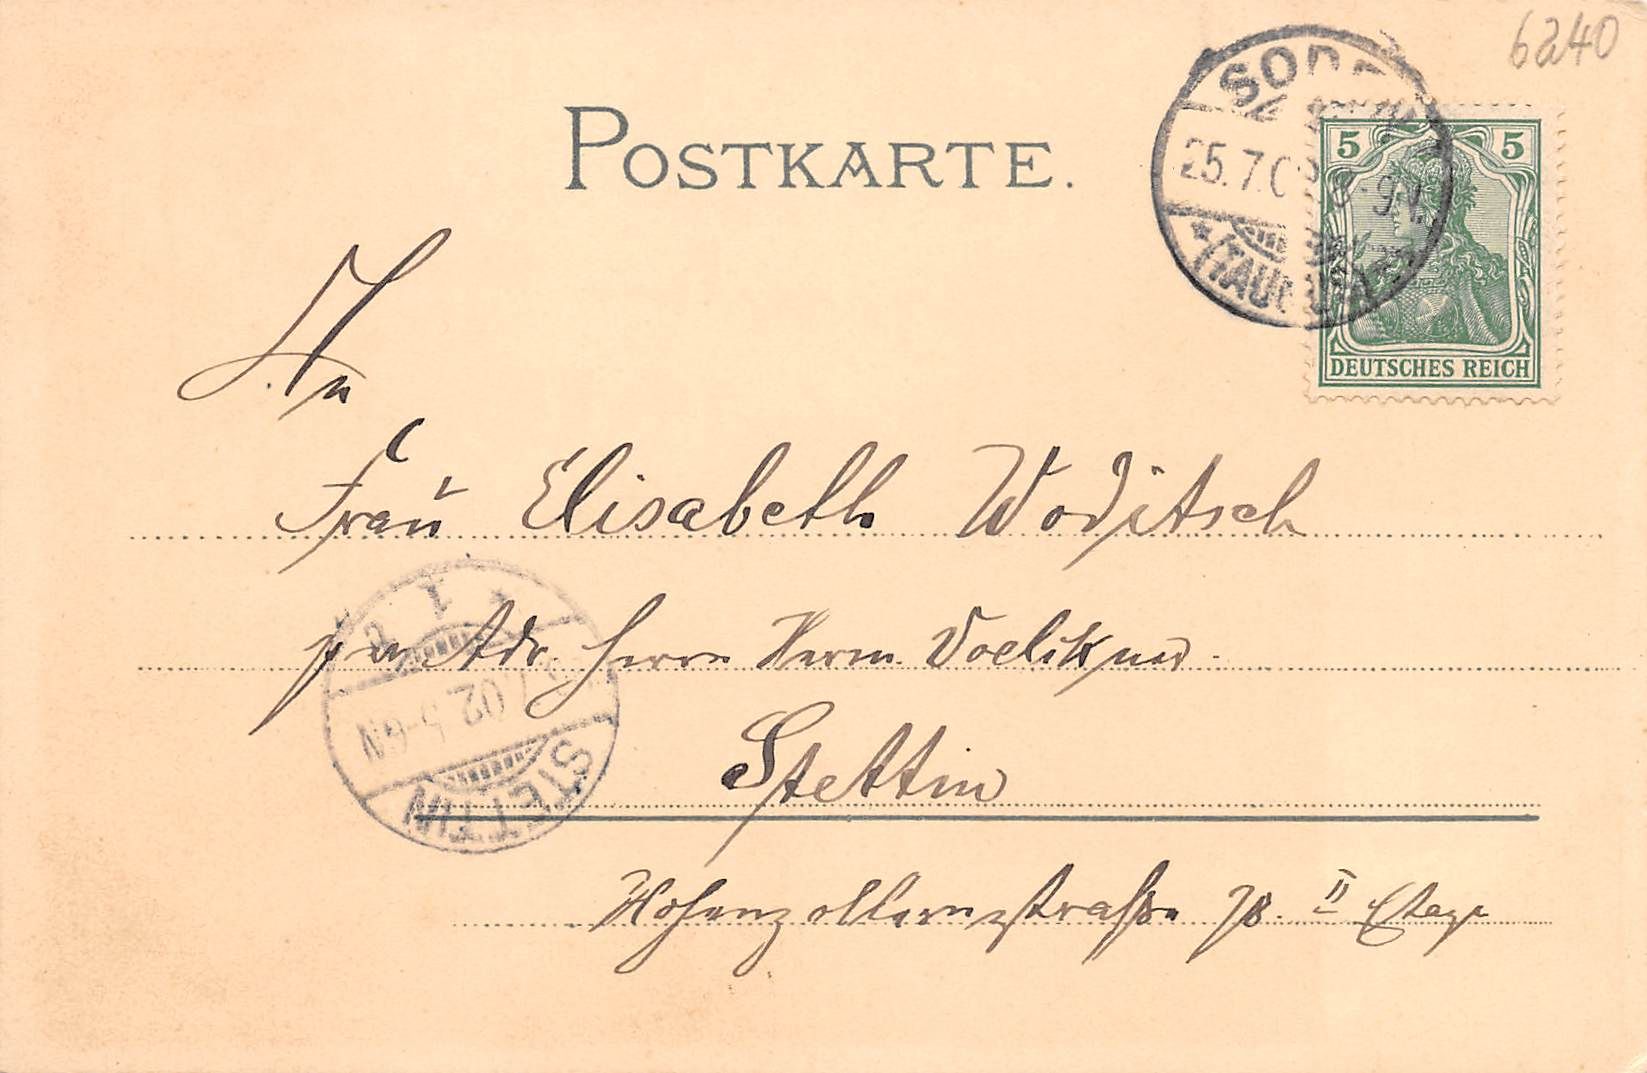 6240
POSTKARTE.
SODEN
25.7.0 8-9N.
* (TAUNUS)
5 5
DEUTSCHES REICH
An
Frau Elisabeth Woditsch
per Adr. Herrn Herm.
Stettin
Hohenzollernstraße 78. II Etage
STETTIN
7.02. 5-6N
1